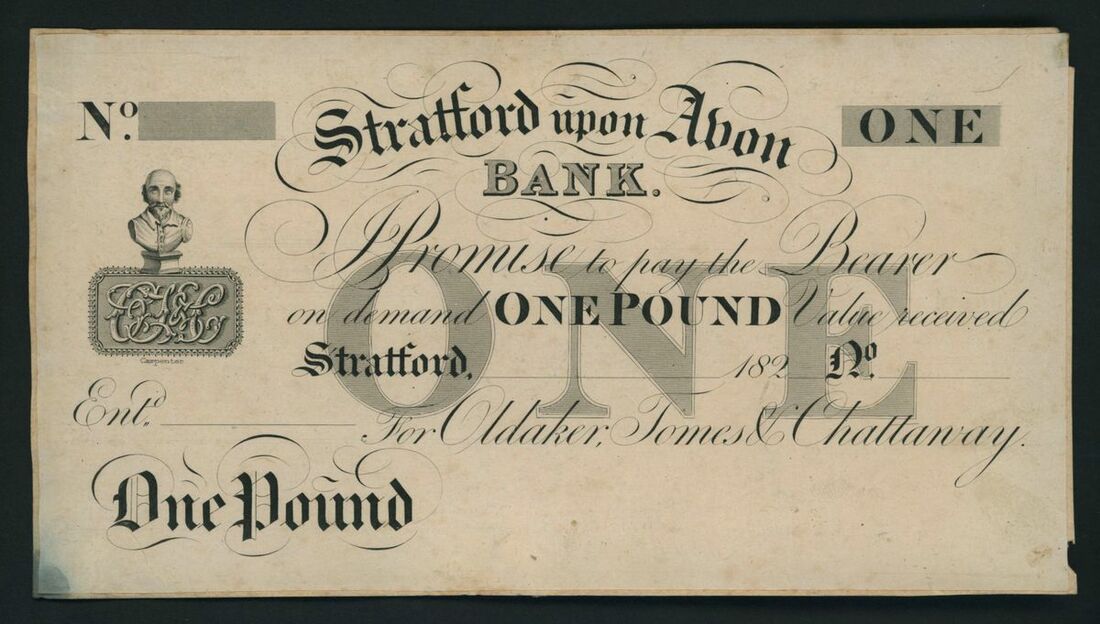 No.
Stratford upon Avon
ONE
BANK.
I Promise to pay the Bearer
on demand ONE POUND Value received
Stratford, 182 No.
ONE
Carpenter
Entd.
For Oldaker, Tomes & Chattaway.
One Pound